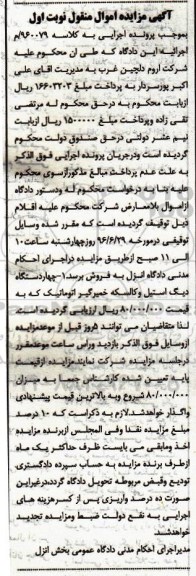 آگهی مزایده اموال منقول نوبت اول
بموجب پرونده اجرایی به کلاسه ۹۶۰۰۷۹/م
اجرائیه این دادگاه که طی ان محکوم علیه
شرکت اروم دلچین غرب به مدیریت اقای علی
اکبر پورسردار به پرداخت مبلغ ۱۶۶۰۲۲۰۳ ریال
ازبابت محکوم به درحق محکوم له مرتضی
تقی زاده وپرداخت مبلغ ۱۵۰۰۰۰۰ ریال ازبابت
نیم عشر دولتی درحق صندوق دولت محکوم
گردیده است ودرجریان پرونده اجرایی فوق الذکر
به علت عدم پرداخت مبالغ مذکورازسوی محکوم
علیه بنا به درخواست محکوم له ودستور دادگاه
ازاموال بلامعارض شرکت محکوم علیه اقلام
ذیل توقیف گردیده است که مقرر شده وسایل
توقیفی درمورخه ۹۶/۶/۲۹ روزچهارشنبه ساعت ۱۰
الی ۱۱ صبح ازطریق مزایده دراجرای احکام
مدنی دادگاه انزل به فروش برسد۱-چهاردستگاه
دیگ استیل وکالسکه خمیرگیر اتوماتیک که به
قیمت ۸۰/۰۰۰/۰۰۰ ریال ارزیابی گردیده است.
لذا متقاضیان می توانند ۵روز قبل از موعدمزایده
ازوسایل فوق الذکر بازدید وراس ساعت موعدمقرر
درجلسه مزایده شرکت نمایند.مزایده ازقیمت
تعیین شده کارشناس جمعا به میزان
۸۰/۰۰۰/۰۰۰ شروع وبه بالاترین قیمت پیشنهادی
واگذار خواهدشد.لازم به ذکراست که ۱۰ درصد
مبلغ مزایده نقدا وفی المجلس ازبرنده مزایده
اخذ ومابقی می بایست ظرف حداکثر یک ماه
ازطرف برنده مزایده به حساب سپرده دادگستری
تودیع وقبض مربوطه تحویل دادگاه گردددرغیراین
صورت ده درصد واریزی پس از کسرهزینه های
اجرایی به نفع دولت ضبط ومزایده تجدید
خواهدشد.
مدیراجرای احکام مدنی دادگاه عمومی بخش انزل